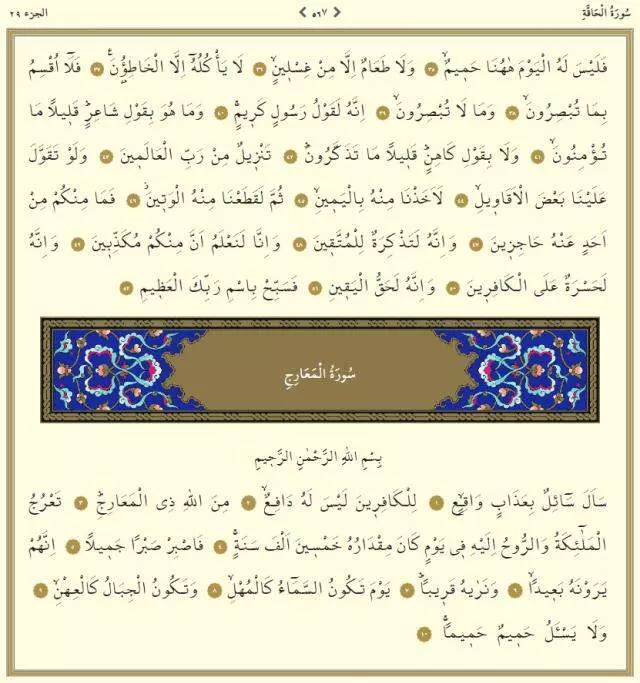 سُورَةُ الْحَاقَّةِ
٥٦٧
الجزء ٢٩
فَلَيْسَ لَهُ الْيَوْمَ هٰهُنَا حَمِيمٌۙ ٣٥ وَلَا طَعَامٌ اِلَّا مِنْ غِسْلِينٍۙ ٣٦ لَا يَأْكُلُهُٓ اِلَّا الْخَاطِؤُ۫نَ۟ ٣٧ فَلَٓا اُقْسِمُ
بِمَا تُبْصِرُونَۙ ٣٨ وَمَا لَا تُبْصِرُونَۙ ٣٩ اِنَّهُ لَقَوْلُ رَسُولٍ كَرِيمٍۚ ٤٠ وَمَا هُوَ بِقَوْلِ شَاعِرٍۜ قَلِيلًا مَا
تُؤْمِنُونَۙ ٤١ وَلَا بِقَوْلِ كَاهِنٍۜ قَلِيلًا مَا تَذَكَّرُونَۜ ٤٢ تَنْزِيلٌ مِنْ رَبِّ الْعَالَمِينَ ٤٣ وَلَوْ تَقَوَّلَ
عَلَيْنَا بَعْضَ الْاَقَاوِيلِۙ ٤٤ لَاَخَذْنَا مِنْهُ بِالْيَمِينِۙ ٤٥ ثُمَّ لَقَطَعْنَا مِنْهُ الْوَتِينَۘ ٤٦ فَمَا مِنْكُمْ مِنْ
اَحَدٍ عَنْهُ حَاجِزِينَ ٤٧ وَاِنَّهُ لَتَذْكِرَةٌ لِلْمُتَّقِينَ ٤٨ وَاِنَّا لَنَعْلَمُ اَنَّ مِنْكُمْ مُكَذِّبِينَ ٤٩ وَاِنَّهُ
لَحَسْرَةٌ عَلَى الْكَافِرِينَ ٥٠ وَاِنَّهُ لَحَقُّ الْيَقِينِ ٥١ فَسَبِّحْ بِاسْمِ رَبِّكَ الْعَظِيمِ ٥٢
سُورَةُ الْمَعَارِجِ
بِسْمِ اللهِ الرَّحْمٰنِ الرَّحِيمِ
سَاَلَ سَٓائِلٌ بِعَذَابٍ وَاقِعٍۙ ١ لِلْكَافِرِينَ لَيْسَ لَهُ دَافِعٌۙ ٢ مِنَ اللهِ ذِي الْمَعَارِجِۜ ٣ تَعْرُجُ
الْمَلٰٓئِكَةُ وَالرُّوحُ اِلَيْهِ فِي يَوْمٍ كَانَ مِقْدَارُهُ خَمْسِينَ اَلْفَ سَنَةٍۚ ٤ فَاصْبِرْ صَبْرًا جَمِيلًا ٥ اِنَّهُمْ
يَرَوْنَهُ بَعِيدًاۙ ٦ وَنَرٰيهُ قَرِيبًاۜ ٧ يَوْمَ تَكُونُ السَّمَٓاءُ كَالْمُهْلِۙ ٨ وَتَكُونُ الْجِبَالُ كَالْعِهْنِۙ ٩
وَلَا يَسْـَٔلُ حَمِيمٌ حَمِيمًاۚ ١٠